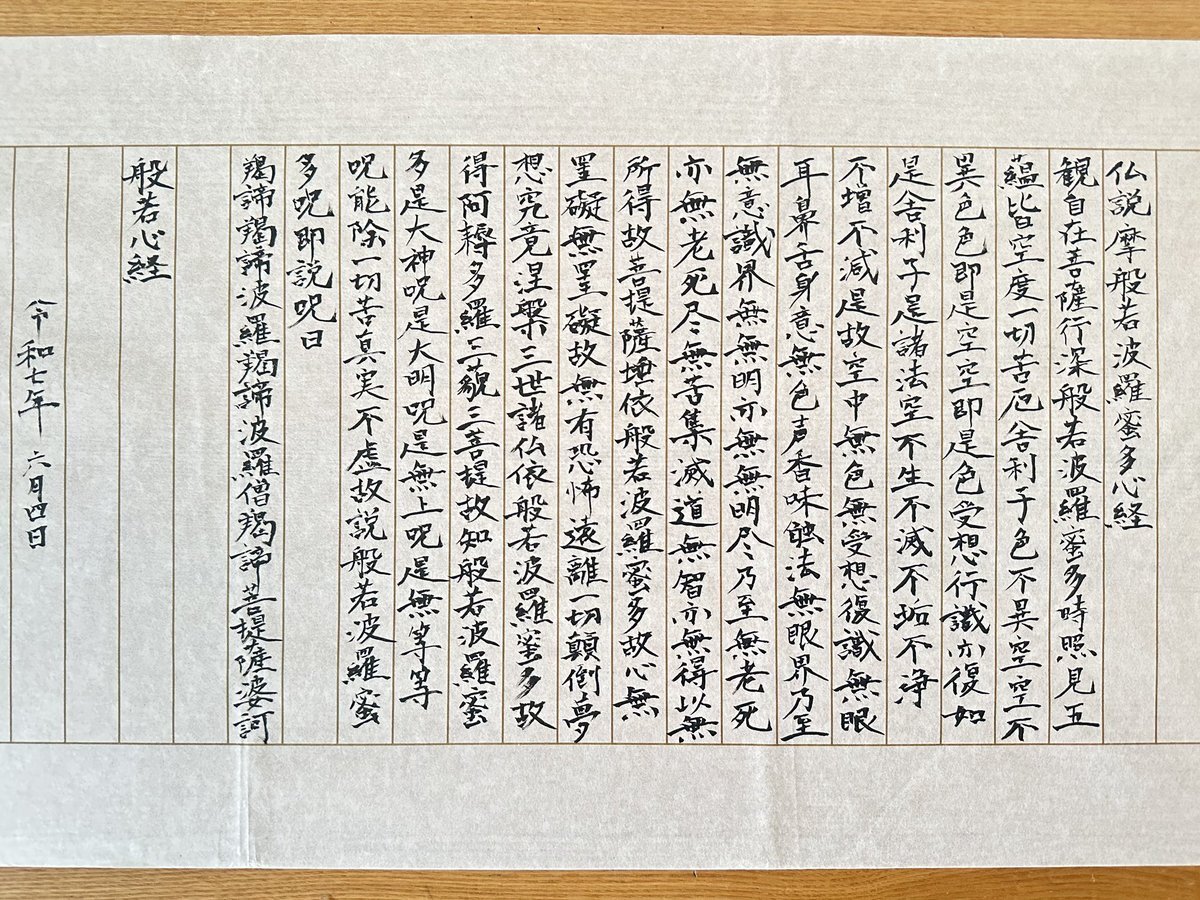 仏説摩般若波羅蜜多心経
観自在菩薩行深般若波羅蜜多時照見五
蘊皆空度一切苦厄舎利子色不異空空不
異色色即是空空即是色受想行識亦復如
是舎利子是諸法空不生不滅不垢不浄
不増不減是故空中無色無受想復識無眼
耳鼻舌身意無色声香味触法無眼界乃至
無意識界無無明亦無無明尽乃至無老死
亦無老死尽無苦集滅道無智亦無得以無
所得故菩提薩埵依般若波羅蜜多故心無
罣礙無罣礙故無有恐怖遠離一切顛倒夢
想究竟涅槃三世諸仏依般若波羅蜜多故
得阿耨多羅三藐三菩提故知般若波羅蜜
多是大神呪是大明呪是無上呪是無等等
呪能除一切苦真実不虚故説般若波羅蜜
多呪即説呪曰
羯諦羯諦波羅羯諦波羅僧羯諦 菩提薩婆訶
般若心経
令和七年 六月四日